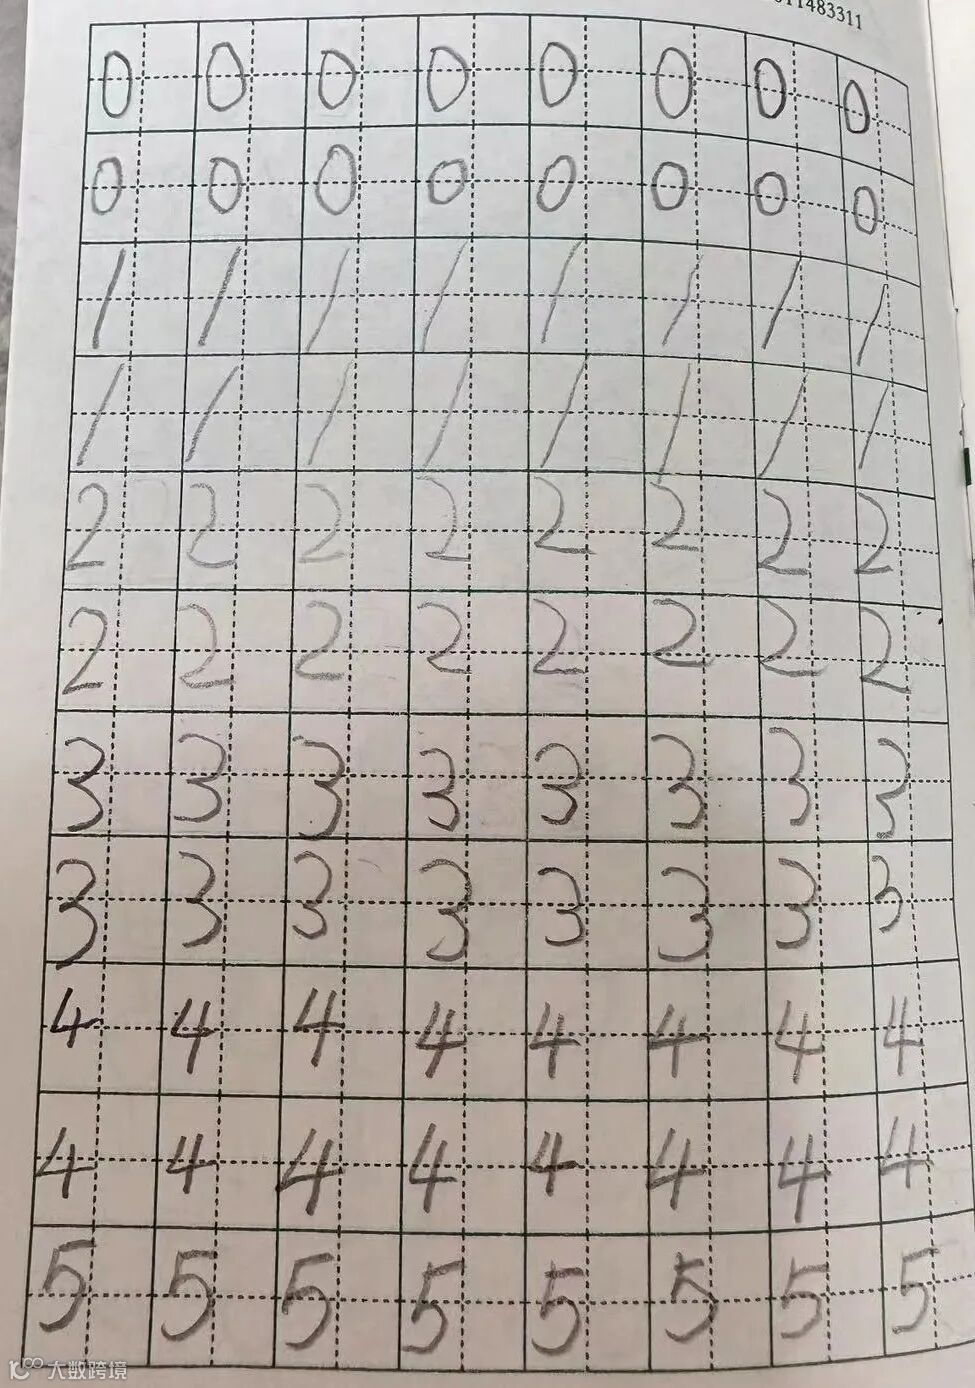 11483311
0 0 0 0 0 0 0 0
0 0 0 0 0 0 0 0
1 1 1 1 1 1 1 1
1 1 1 1 1 1 1 1
2 2 2 2 2 2 2 2
2 2 2 2 2 2 2 2
3 3 3 3 3 3 3 3
3 3 3 3 3 3 3 3
4 4 4 4 4 4 4 4
4 4 4 4 4 4 4 4
5 5 5 5 5 5 5 5
大数跨境